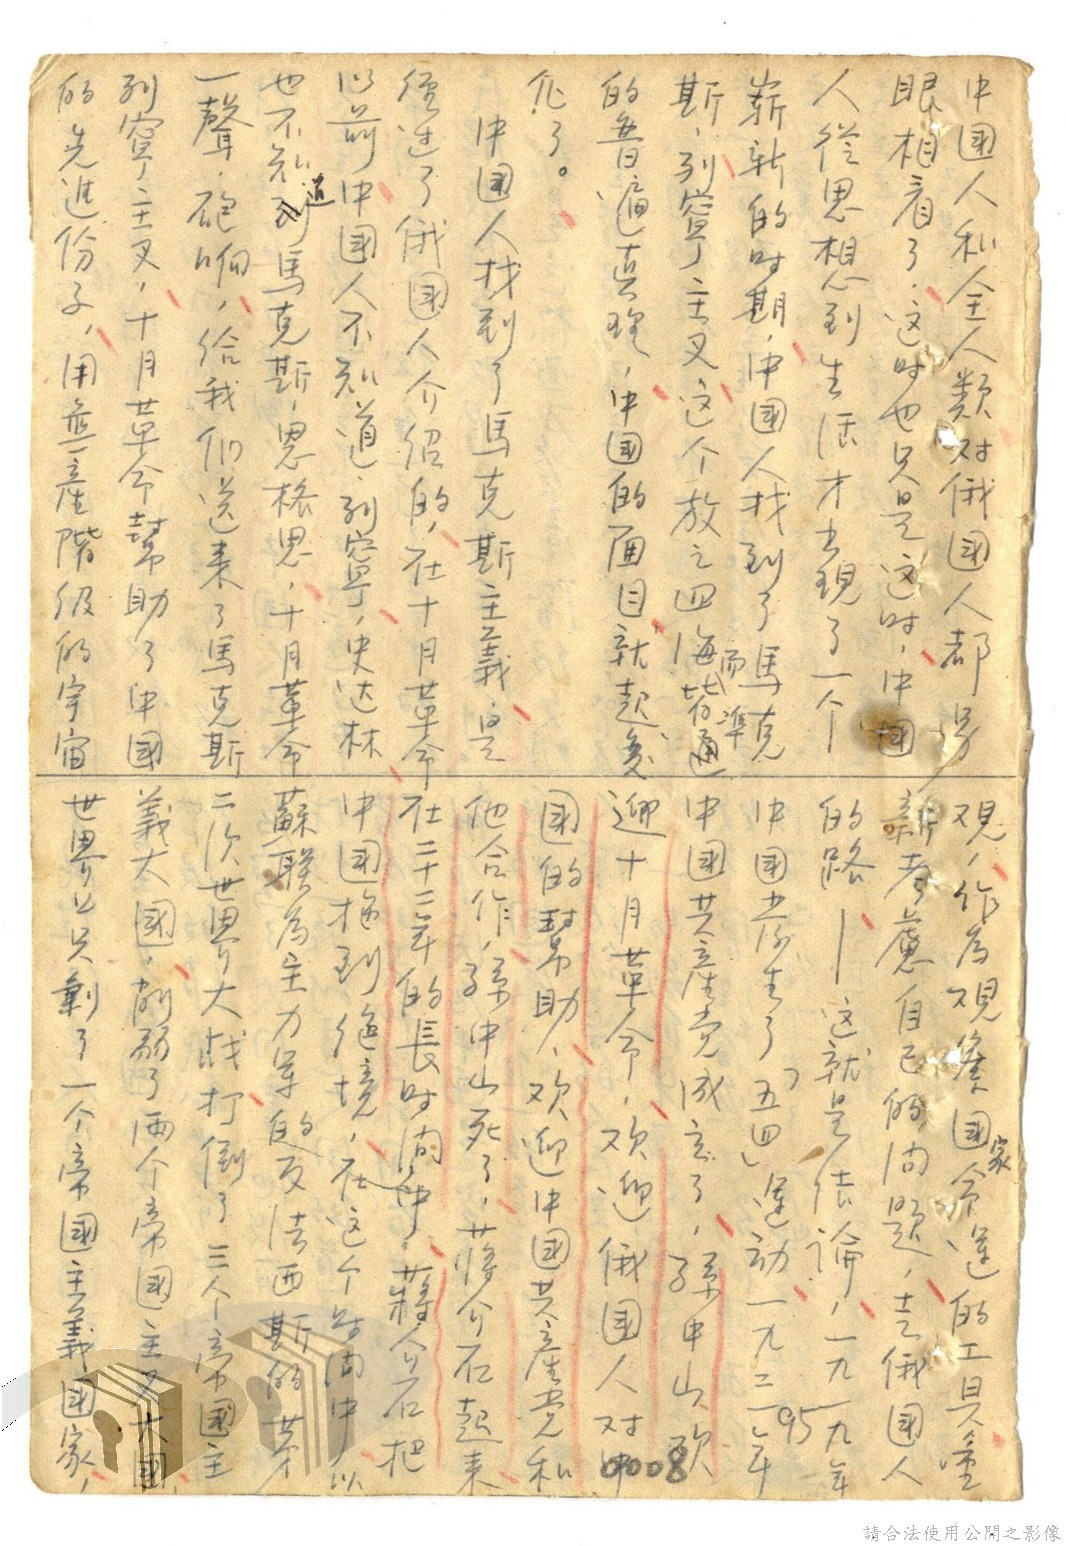 中国人和全人類对俄国人都另
眼相看了，这时也只是这时，中國
人從思想到生活才出現了一个
嶄新的时期，中國人找到了馬克
斯、列寧主义这个放之四海皆通
而準
的普遍真理，中国的面目就起变
化了。
中國人找到了馬克斯主義，是
經过了俄國人介绍的，在十月革命
以前中國人不知道列寧，史达林
也不知道馬克斯，恩格思，十月革命
一聲，砲响，给我们送来了馬克斯
列寧主义，十月革命幫助了中國
的先進份子，用無產階级的宇宙
观，作為观察国家命運的工具，重
新考慮自己的問題，走俄国人
的路——这就是结論，一九一九年
中国发生了「五四」運动一九二一年
中國共產党成立了，孫中山欢
迎十月革命，欢迎俄国人对中
国的幫助，欢迎中国共產党和
他合作，孫中山死了，蒋介石起来
在二十二年的長时间中，蔣介石把
中国拖到绝境，在这个时间中以
蘇联為主力軍的反法西斯的第
二次世界大战打倒了三个帝國主
義大國，削弱了两个帝国主义大國
世界上只剩了一个帝國主義國家，
95
0008
請合法使用公開之影像